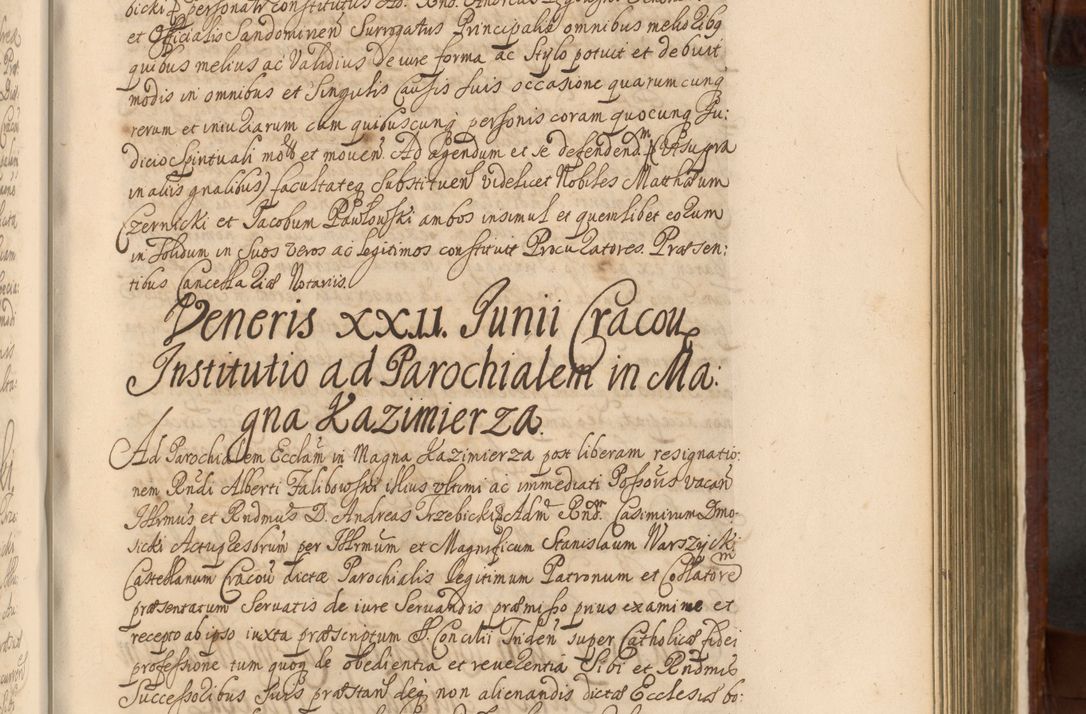 et Officialis Sandomirien Surrogatus Principalis omnibus melioribq
quibus melius ac Validius De iure forma ac Stylo potuit et debuit
modis in omnibus et Singulis Causis Suis occasione quarumcunq
rerum et iniuriarum cum quibuscunq personis coram quocunq Ju:
dicio Spirituali motis et mouen Ad agendum et se defendendm (Ut supra
in aliis gnalibus) facultateq Substituen videlicet Nobiles Matthæum
Czernicki et Jacobum Pawłowski ambos insimul et quemlibet eorum
in Solidum in Suos Veros ac legitimos constituit Procuratores. Præsen:
tibus Cancellariæ Notariis.
Veneris XXII. Junii Cracouæ
Institutio ad Parochialem in Ma:
gna Kazimierza.
Ad Parochialem Ecclam in Magna Kazimierza post liberam resignatio:
nem Rndi Alberti Falibowski illius vltimi ac immediati Possoris vacan
Illrmus et Rndmus D. Andreas Trzebicki Adm Rndm Casimirum Dmo-
sicki Actu Præsbrum per Illrmum et Magnificum Stanislaum Warszycki
Castellanum Cracou dictæ Parochialis legitimum Patronum et Collatorem
præsentatum Seruatis de iure Seruandis præmisso prius examine et
recepto ab ipso iuxta præscriptum S. Concilii Triden super Catholicæ fidei
professione tum quoq de obedientia et reuerentia Sibi et Rndmis
Successoribus Suis præstan deq non alienandis dictæ Ecclesiæ bo: